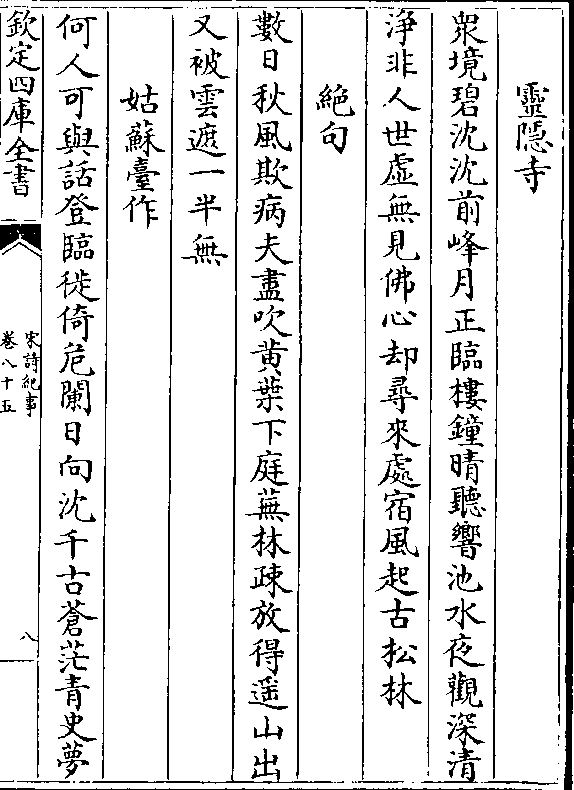 靈隱寺
衆境碧沈沈前峰月正臨樓鐘晴聽響池水夜觀深清
淨非人世虛無見佛心却尋來處宿風起古松林
絶句
數日秋風欺病夫盡吹黄葉下庭蕪林疎放得遥山出
又被雲遮一半無
姑蘇臺作
何人可與話登臨徙倚危闌日向沈千古蒼茫青史夢
欽定四庫全書
宋詩紀事
卷八十五
八